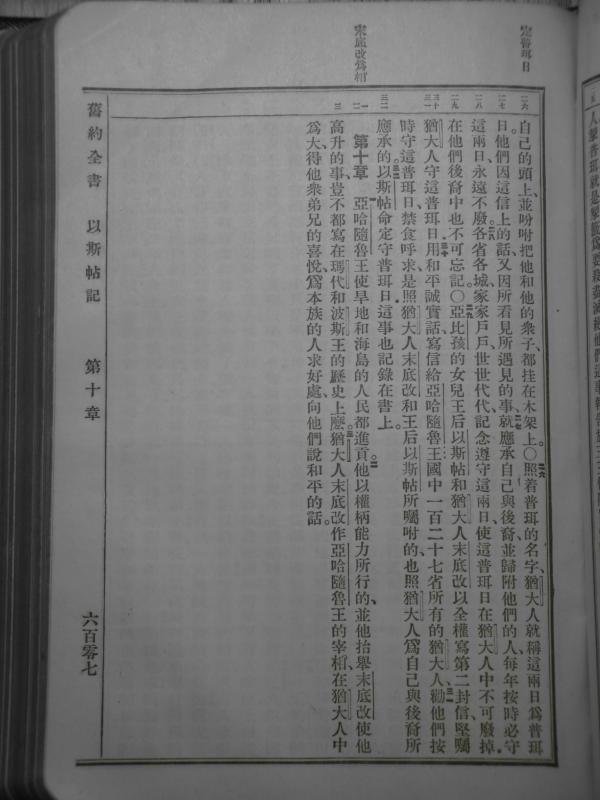 定普珥日
末底改爲相
二六
二七
二八
二九
三十
三一
三二
一
二
三
自己的頭上、並吩咐把他和他的衆子、都挂在木架上。○照着普珥的名字、猶大人就稱這兩日爲普珥
日、他們因這信上的話、又因所看見所遇見的事、就應承自己與後裔、並歸附他們的人、每年按時必守
這兩日、永遠不廢。各省各城、家家戶戶、世世代代、記念遵守這兩日、使這普珥日、在猶大人中不可廢掉、
在他們後裔中也不可忘記。○亞比孩的女兒王后以斯帖、和猶大人末底改、以全權寫第二封信、堅囑
猶大人守這普珥日。用和平誠實話、寫信給亞哈隨魯王國中、一百二十七省所有的猶大人、勸他們按
時守這普珥日、禁食呼求、是照猶大人末底改、和王后以斯帖所囑咐的、也照猶大人爲自己與後裔所
應承的。以斯帖命定守普珥日、這事也記錄在書上。
第十章 亞哈隨魯王使旱地和海島的人民都進貢。他以權柄能力所行的、並他抬舉末底改使他
高升的事、豈不都寫在瑪代和波斯王的歷史上麽。猶大人末底改作亞哈隨魯王的宰相、在猶大人中
爲大、得他衆弟兄的喜悅、爲本族的人求好處、向他們說和平的話。
舊約全書 以斯帖記 第十章 六百零七